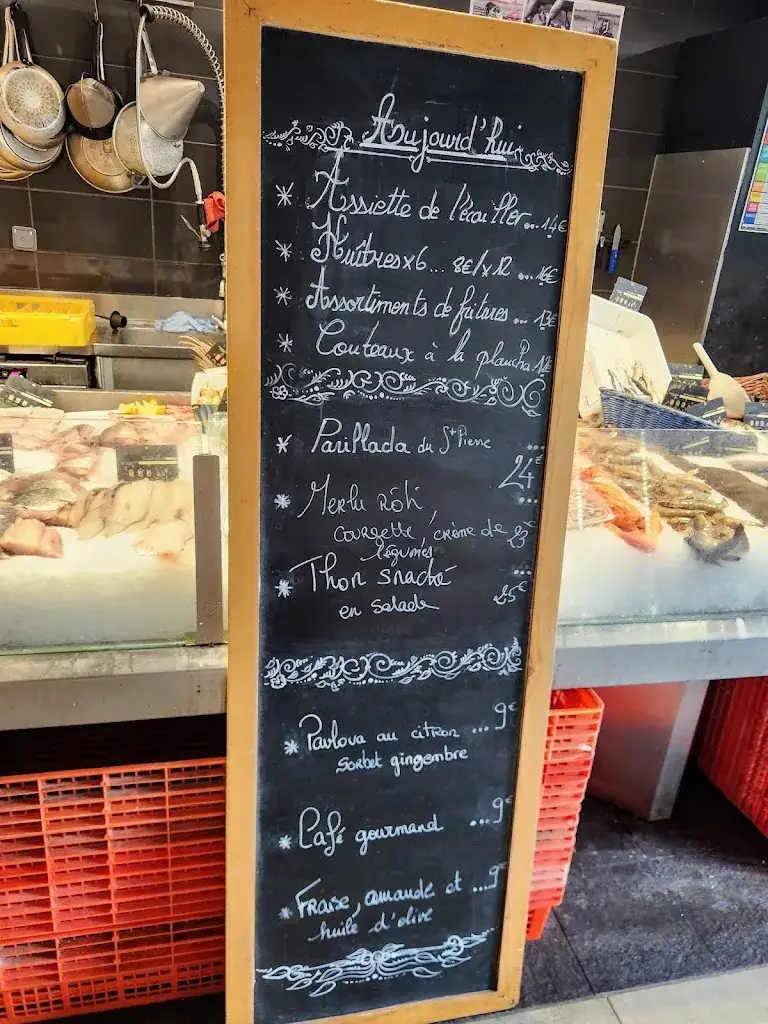 Aujourd'hui
* Assiette de l'écailler... 14€
* Huîtres x6... 8€/x12 ... 16€
* Assortiments de fritures ... 13€
* Couteaux à la plancha 12€
* Parillada du St Pierre ...
24€
...
* Merlu rôti,
courgette, crème de 23€
légumes
* Thon snacké ...
en salade 25€
* Pavlova au citron ... 9€
Sorbet gingembre
* Café gourmand ... 9€
* Fraise, amande et ... 9€
huile d'olive